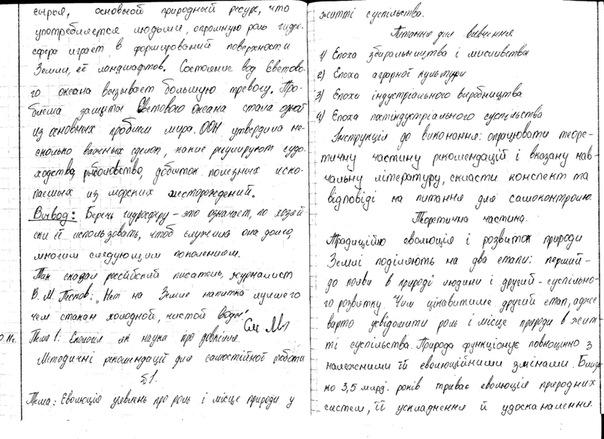 сырья, основной природный ресурс, что
употребляется людьми, огромную роль гидро-
сфера играет в формировании поверхности
Земли, её ландшафтов. Состояние вод Светово-
го океана вызывает большую тревогу. Про-
блема защиты Светового океана стала одной
из основных проблем мира. ООН утвердила не-
сколько важных сделок, какие регулируют судо-
ходства, рыболовство, добыток полезных иско-
паемых из морских месторождений.
Вывод: Беречь гидросферу - это означает, по хозяй
ски её использовать, чтоб служила она долго,
многим следующим поколением.
Так сказал российский писатель, журналист
В. М. Песков: „Нет на Земле напитка лучшего
чем стакан холодной, чистой воды".
Тема 1: Екологія як наука про довкілля.
Методичні рекомендації для самостійної роботи
§1.
Тема: Еволюція уявлень про роль і місце природи у
житті суспільства.
Питання для вивчення
1) Епоха збиральництва і мисливства
2) Епоха аграрної культури
3) Епоха індустріального виробництва
4) Епоха постіндустріального суспільства
Інструкція до виконання: опрацювати теоре-
тичну частину рекомендацій і вказану нав-
чальну літературу, скласти конспект та
відповіді на питання для самоконтролю.
Теоретична частина.
Традиційно еволюція і розвиток природи
Землі поділяють на два етапи: перший-
до появи в природі людини і другий - суспільно-
го розвитку. Чим цікавитиме другий етап, адже
варто усвідомити роль і місце природи в жит
ті суспільства. Природа функціонує повноцінно з
належними їй еволюційними змінами. Близь
ко 3,5 млрд. років триває еволюція природних
систем, її ускладнення й удосконалення.